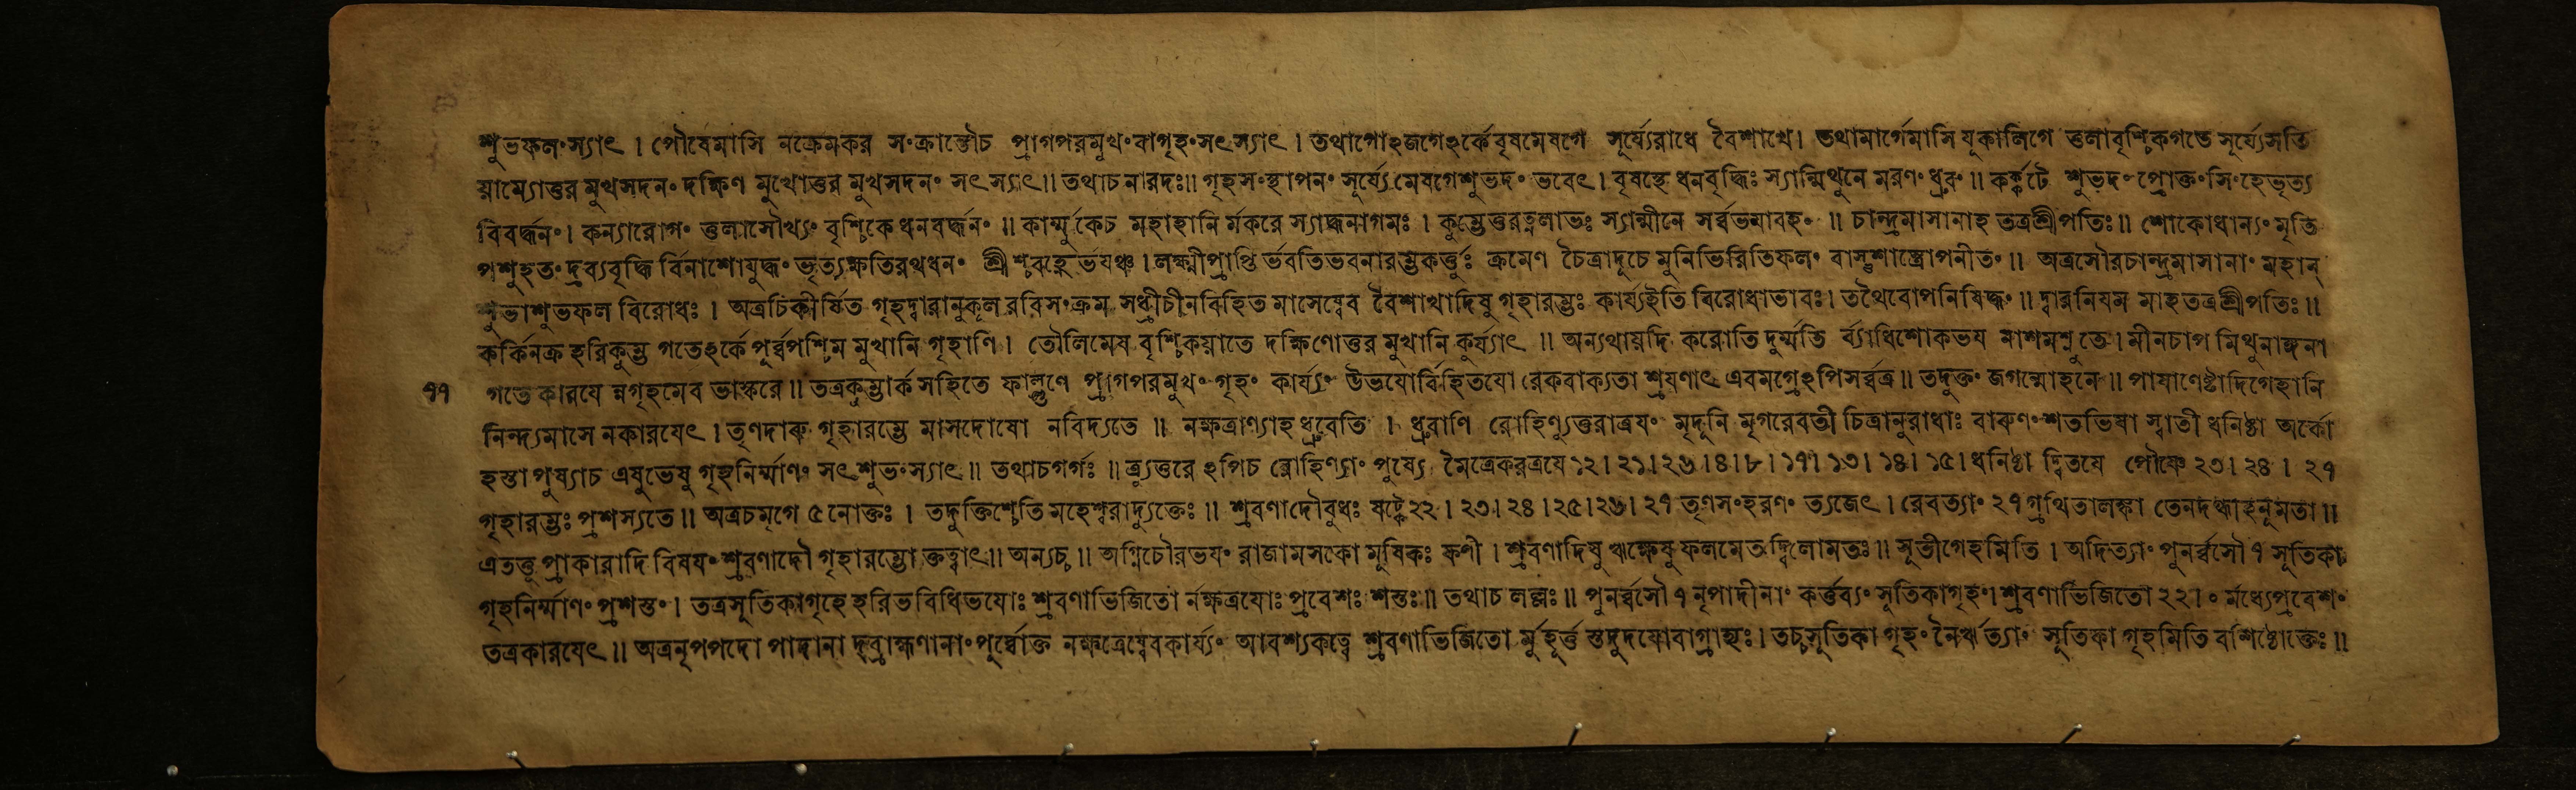 শুভফলং স্যাৎ । পৌষেমাসি নক্রেমকর সংক্রান্তৌচ প্রাগপরমুখং বাগৃহং সৎস্যাৎ । তথাগোঽজগেঽর্কেবৃষমেষগে সূর্য্যেরাধে বৈশাখে । তথামার্গেমাসি যূকালিগে তুলাবৃশ্চিকগতে সূর্য্যেসতি
য়াম্যোত্তর মুখসদনং দক্ষিণ মুখোত্তর মুখসদনং সৎ স্যাৎ ॥ তথাচ নারদঃ ॥ গৃহসংস্থাপনং সূর্য্যে মেষগেশুভদং ভবেৎ । বৃষস্থে ধনবৃদ্ধিঃ স্যান্মিথুনে মরণং ধ্রুবং ॥ কর্কটে শুভদং প্রোক্তং সিংহেভৃত্য
বিবর্দ্ধনং । কন্যারোগং তুলাসৌখ্যং বৃশ্চিকে ধনবর্দ্ধনং ॥ কার্ম্মুকেচ মহাহানি র্মকরে স্যাদ্ধনাগমঃ । কুম্ভেতুরত্নলাভঃ স্যান্মীনে সর্ব্বভয়াবহং ॥ চান্দ্রমাসানাহ তত্রশ্রীপতিঃ ॥ শোকোধান্যং মৃতি
পশুহৃতং দ্রব্যবৃদ্ধি র্বিনাশোযুদ্ধং ভৃত্যক্ষতিরথধনং শ্রীশ্চবহ্নের্ভযঞ্চ । লক্ষ্মীপ্রাপ্তি র্ভবতিভবনারম্ভকর্ত্তুঃ ক্রমেণ চৈত্রাদূচে মুনিভিরিতিফলং বাস্তুশাস্ত্রোপনীতং ॥ অত্রসৌরচান্দ্রমাসানাং মহান্
শুভাশুভফল বিরোধঃ । অত্রচিকীর্ষিত গৃহদ্বারানুকূল রবিসংক্রম সধ্রীচীনবিহিত মাসেষ্বেব বৈশাখাদিষু গৃহারম্ভঃ কার্য্যইতি বিরোধাভাবঃ । তথৈবোপনিবিদ্ধং ॥ দ্বারনিযম মাহ তত্রশ্রীপতিঃ ॥
কর্কিনক্র হরিকুম্ভ গতেঽর্কে পূর্ব্বপশ্চিম মুখানি গৃহাণি । তৌলিমেষ বৃশ্চিকয়াতে দক্ষিণোত্তর মুখানি কুর্য্যাৎ ॥ অন্যথায়দি করোতি দুর্ম্মতি র্ব্যাধিশোকভয নাশমশ্নুতে । মীনচাপ মিথুনাঙ্গনা
৭৭ গতে কারযে ন্নগৃহমেব ভাস্করে ॥ তত্রকুম্ভার্ক সহিতে ফাল্গুণে প্রাগপরমুখং গৃহং কার্য্যং উভযোর্বিহিতযো রেকবাক্যতা শ্রযণাৎ এবমগ্রেঽপিসর্ব্বত্র ॥ তদুক্তং জগন্মোহনে ॥ পাষাণেষ্টাদিগেহানি
নিন্দ্যমাসে নকারযেৎ । তৃণদারু গৃহারম্ভে মাসদোষো নবিদ্যতে ॥ নক্ষত্রাণ্যাহ ধ্রুবেতি । ধ্রুবাণি রোহিণ্যুত্তরাত্রযং মৃদূনি মৃগরেবতী চিত্রানুরাধাঃ বারুণং শতভিষা স্বাতী ধনিষ্ঠা অর্কো
হস্তা পুষ্যাচ এষুভেষু গৃহনির্ম্মাণং সৎ শুভং স্যাৎ ॥ তথাচগর্গঃ ॥ ত্র্যুত্তরেঽপিচ রোহিণ্যাং পুষ্যে মৈত্রেকরত্রযে ১২ । ২১ । ২৬ । ৪ । ৮ । ১৭ । ১৩ । ১৪ । ১৫ । ধনিষ্ঠা দ্বিতযে পৌষ্ণে ২৩ । ২৪ । ২৭
গৃহারম্ভঃ প্রশস্যতে ॥ অত্রচমৃগে ৫ নোক্তঃ । তদুক্তিশ্চেতি মহেশ্বরাদ্যুক্তেঃ ॥ শ্রবণাদৌবুধঃ ষট্কে ২২ । ২৩ । ২৪ । ২৫ । ২৬ । ২৭ তৃণসংহরণং ত্যজেৎ । রেবত্যাং ২৭ গ্রথিতালঙ্কা তেনদগ্ধাহনূমতা ॥
এতত্তু প্রাকারাদি বিষযং শ্রবণাদৌ গৃহারম্ভো ক্তত্বাৎ ॥ অন্যচ্চ ॥ অগ্নিচৌরভযং রাজামসকো মূষিকঃ ফণী । শ্রবণাদিষু ঋক্ষেষু ফলমেতদ্বিলোমতঃ ॥ সূতীগেহমিতি । অদিত্যাং পুনর্ব্বসৌ ৭ সূতিকা
গৃহনির্ম্মাণং প্রশস্তং । তত্রসূতিকাগৃহে হরিভবিধিভযোঃ শ্রবণাভিজিতো র্নক্ষত্রযোঃ প্রবেশঃ শস্তঃ ॥ তথাচ লল্লঃ ॥ পুনর্ব্বসৌ ৭ নৃপাদীনাং কর্ত্তব্যং সূতিকাগৃহং । শ্রবণাভিজিতো ২২ । ০ র্মধ্যেপ্রবেশং
তত্রকারযেৎ ॥ অত্রনৃপপদো পাদানা দ্ব্রাহ্মণানাং পূর্ব্বোক্ত নক্ষত্রেষ্বেবকার্য্যং আবশ্যকত্বে শ্রবণাভিজিতো র্মুহূর্ত্ত স্তদুদযোবাগ্রাহ্যঃ । তচ্চসূতিকা গৃহং নৈঋত্যাং সূতিকা গৃহমিতি বশিষ্ঠোক্তেঃ ॥